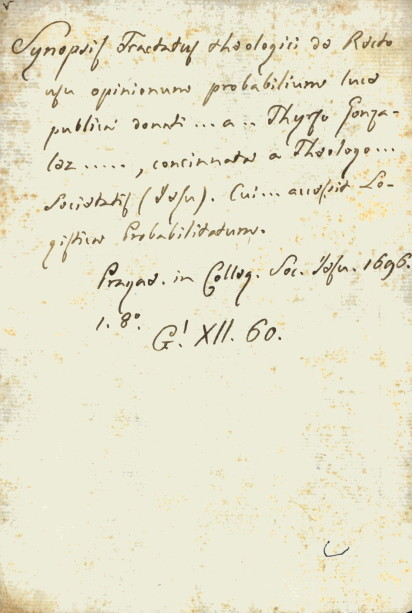 Synopsis Tractatus theologici de Recto
usu opinionum probabilium luce
publicâ donati ... a .. Thyrso Gonza-
lez ....., concinnata a Theologo...
Societatis (Jesu). Cui... accessit Lo-
gistica Probabilitatum.
Pragae. in Colleg. Soc. Jesu. 1696.
1. 8º.
G! XII. 60.